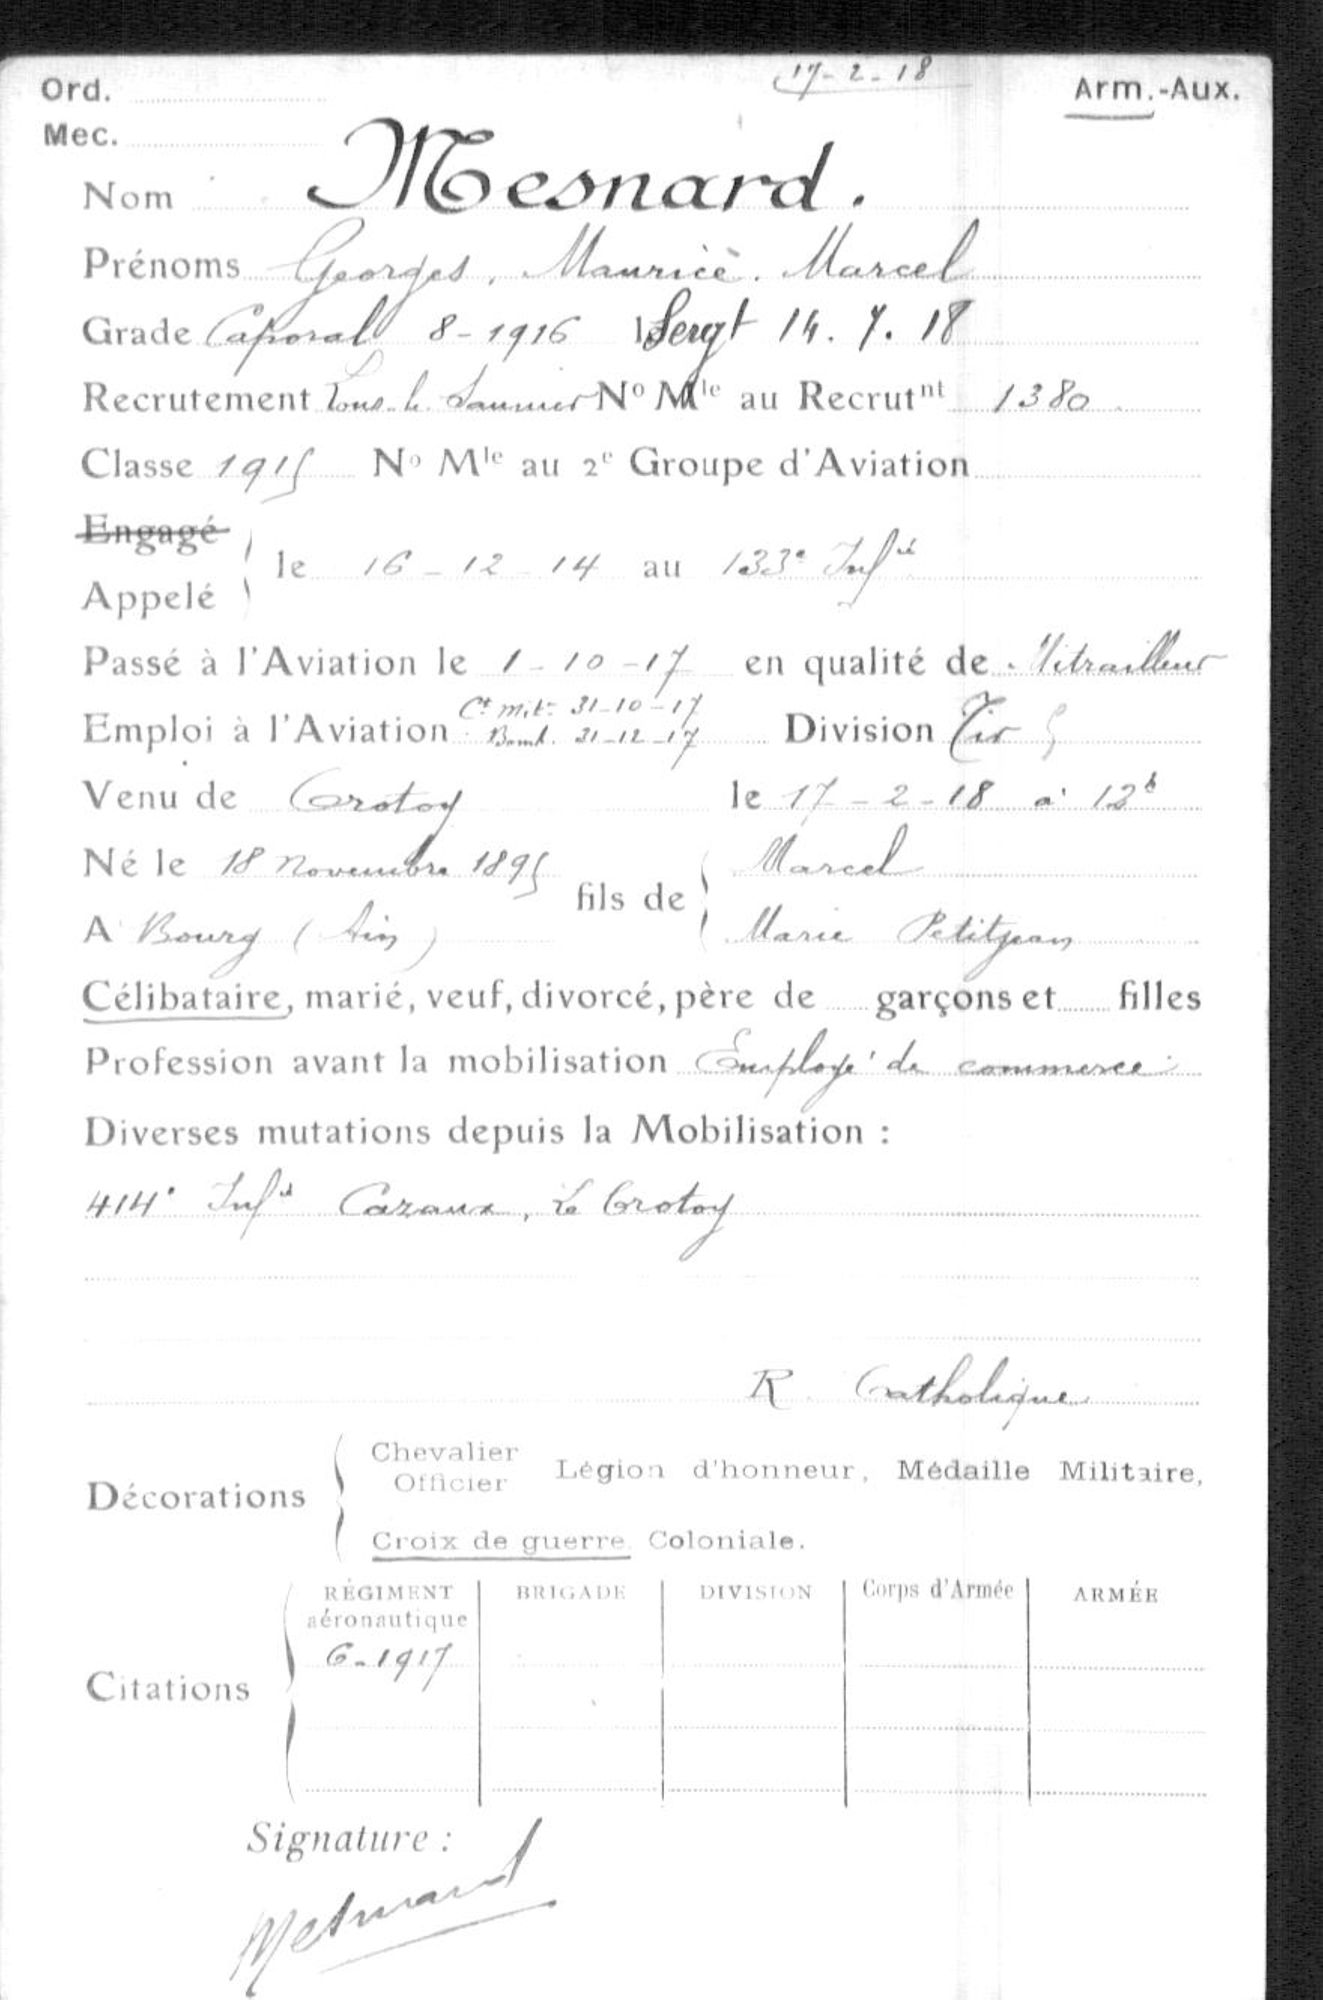 17-2-18
Ord. Arm.-Aux.
Mec.
Nom Mesnard.
Prénoms Georges, Maurice. Marcel
Grade Caporal 8-1916 Sergt 14.7.18
Recrutement Lons-le-Saunier No Mle au Recrutnt 1380
Classe 1915 No Mle au 2e Groupe d'Aviation
Engagé
le 16-12-14 au 133e Infie
Appelé
Passé à l'Aviation le 1-10-17 en qualité de Mitrailleur
Ct mitr 31-10-17
Emploi à l'Aviation Bomb. 21-12-17 Division Tir
Venu de Crotoy le 17-2-18 à 12h
Né le 18 Novembre 1895 fils de Marcel
A Bourg (Ain) Marie Petitjean
Célibataire, marié, veuf, divorcé, père de garçons et filles
Profession avant la mobilisation Employé de commerce
Diverses mutations depuis la Mobilisation :
414e Infie Cazaux, Le Crotoy
R. Catholique
Chevalier
Officier Légion d'honneur, Médaille Militaire,
Décorations
Croix de guerre. Coloniale.
RÉGIMENT BRIGADE DIVISION Corps d'Armée ARMÉE
aéronautique
6-1917
Citations
Signature :
Mesnard